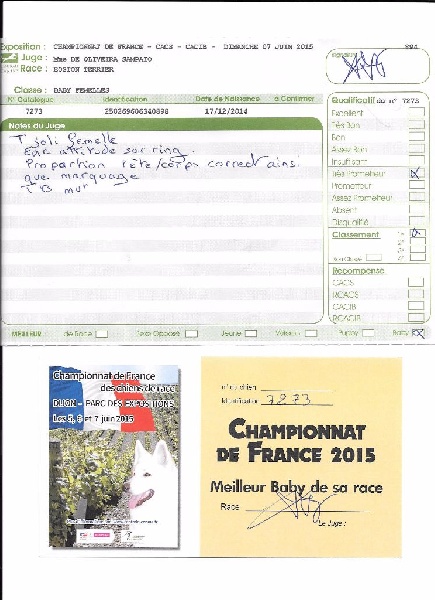 Exposition : CHAMPIONNAT DE FRANCE - CACS - CACIB - DIMANCHE 07 JUIN 2015
Juge : Mme DE OLIVEIRA SAMPAIO
Race : BOSTON TERRIER
Classe : BABY FEMELLES
N° Catalogue Identification Date de Naissance à Confirmer
7273 250269606340898 17/12/2014
Notes du Juge
T joli femelle
attitude sur ring
Proportion tête/corps correct ainsi
que marquage
TB mur
Qualificatif du n° 7273
Excellent
Très Bon
Bon
Assez Bon
Insuffisant
Très Prometteur
Prometteur
Assez Prometteur
Absent
Disqualifié
Classement
Non Classé
Récompense
CACS
RCACS
CACIB
RCACIB
MEILLEUR : de Race Sexe Opposé Jeune Vétéran Puppy Baby
Championnat de France
des chiens de race
DIJON - PARC DES EXPOSITIONS
Les 5, 6 et 7 juin 2015
n° du chien
Identification 7273
CHAMPIONNAT
DE FRANCE 2015
Meilleur Baby de sa race
Race
Le Juge :